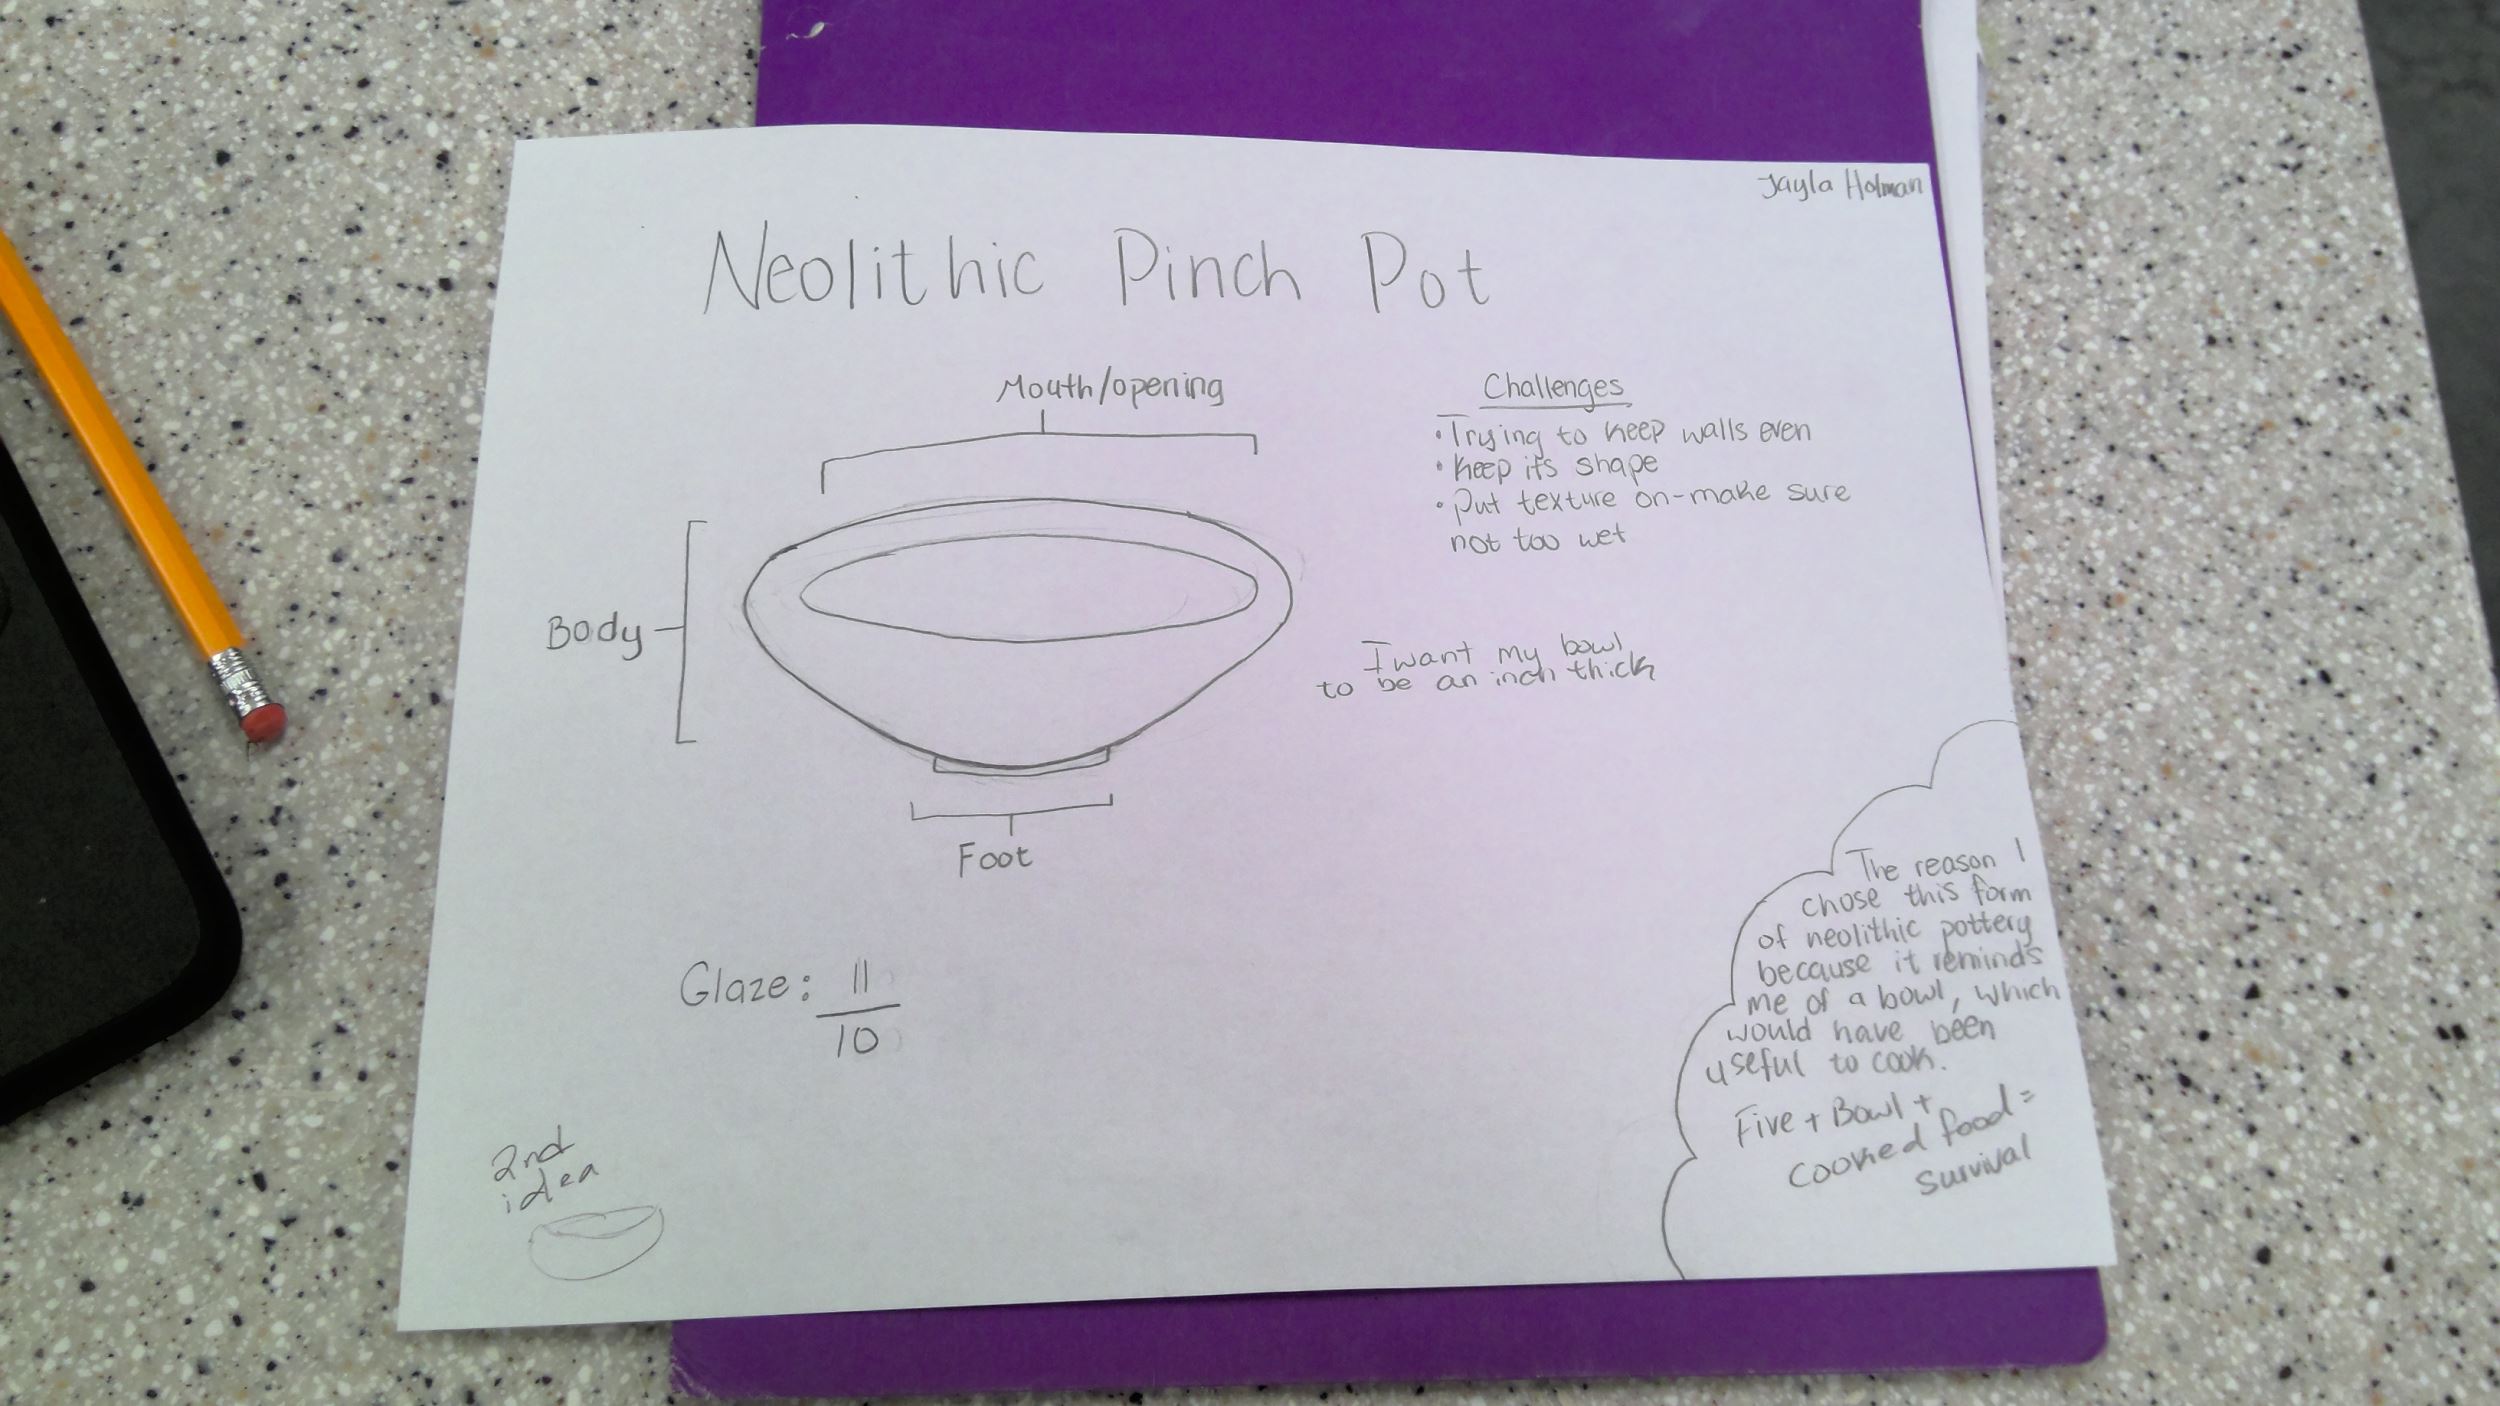 Jayla Holman
Neolithic Pinch Pot
Mouth/opening
Body
Foot
Challenges
• Trying to keep walls even
• Keep its shape
• Put texture on - make sure
not too wet
I want my bowl
to be an inch thick
Glaze: 11
10
2nd
idea
The reason I
chose this form
of neolithic pottery
because it reminds
me of a bowl, which
would have been
useful to cook.
Five + Bowl +
cooked food =
survival